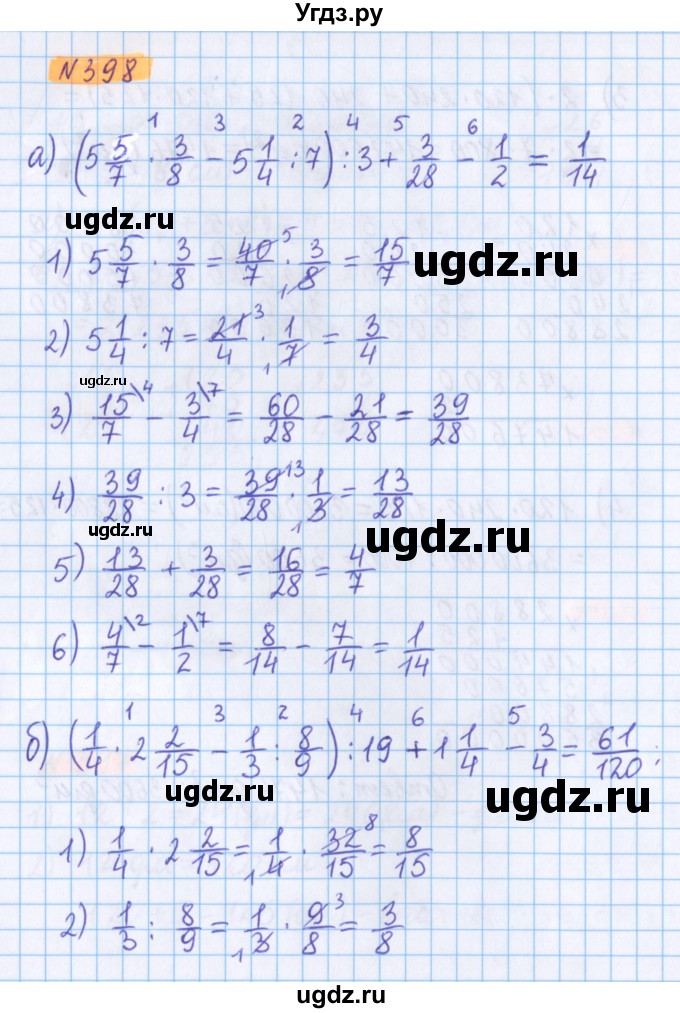 Угдз.ру
N 398
а) (5 5/7 · 3/8 − 5 1/4 : 7) : 3 + 3/28 − 1/2 = 1/14
1 3 2 4 5 6
ugdz.ru
1) 5 5/7 · 3/8 = 40/7 · 3/8 = 15/7
5 1
ugdz.ru
2) 5 1/4 : 7 = 21/4 · 1/7 = 3/4
3 1
ugdz.ru
3) 15/7 \4 − 3/4 \7 = 60/28 − 21/28 = 39/28
4) 39/28 : 3 = 39/28 · 1/3 = 13/28
13 1
ugdz.ru
ugdz.ru
5) 13/28 + 3/28 = 16/28 = 4/7
6) 4/7 \2 − 1/2 \7 = 8/14 − 7/14 = 1/14
б) (1/4 · 2 2/15 − 1/3 : 8/9) : 19 + 1 1/4 − 3/4 = 61/120 ;
1 3 2 4 6 5
ugdz.ru
ugdz.ru
1) 1/4 · 2 2/15 = 1/4 · 32/15 = 8/15
1 8
2) 1/3 : 8/9 = 1/3 · 9/8 = 3/8
1 3
ugdz.ru